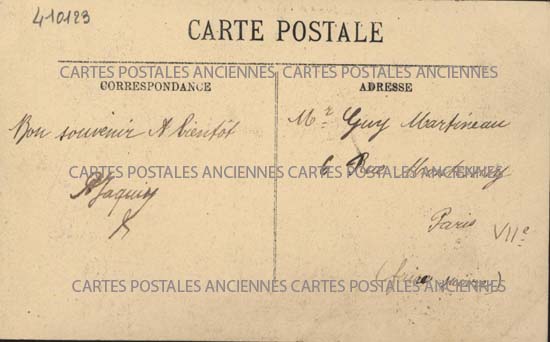 410123
CARTE POSTALE
CARTES POSTALES ANCIENNES CARTES POSTALES ANCIENNES
CORRESPONDANCE
Bon souvenir A bientôt
CARTES POSTALES ANCIENNES
ADRESSE
Mr Guy Martineau
6 Rue
CARTES POSTALES ANCIENNES
Paris VIIe
CARTES POSTALES ANCIENNES CARTES POSTALES ANCIENNES